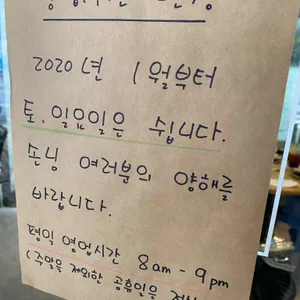 2020년 1월부터
토. 일요일은 쉽니다.
손님 여러분의 양해를
바랍니다.
평일 영업시간 8am - 9pm
(주말을 제외한 공휴일은